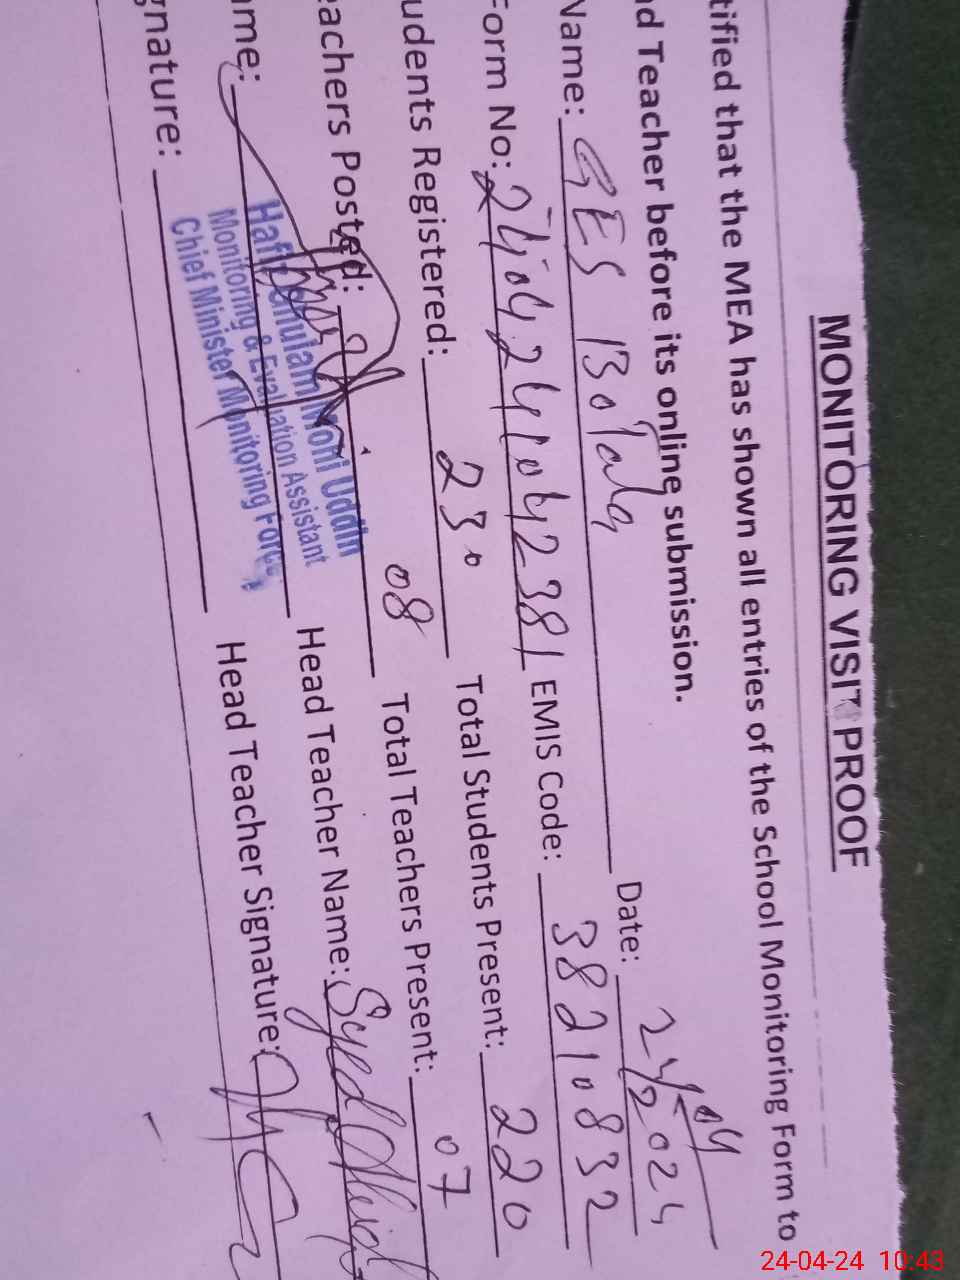 MONITORING VISIT PROOF
tified that the MEA has shown all entries of the School Monitoring Form to
d Teacher before its online submission.
Name: GES Date: 24-04 2024
Form No: EMIS Code: 38210832
udents Registered: 230 Total Students Present: 220
eachers Posted: 08 Total Teachers Present: 07
ame: Head Teacher Name: Syed
gnature: Head Teacher Signature:
Mohi Uddin
Monitoring & Evaluation Assistant
Chief Minister Monitoring Force
24-04-24 10:43